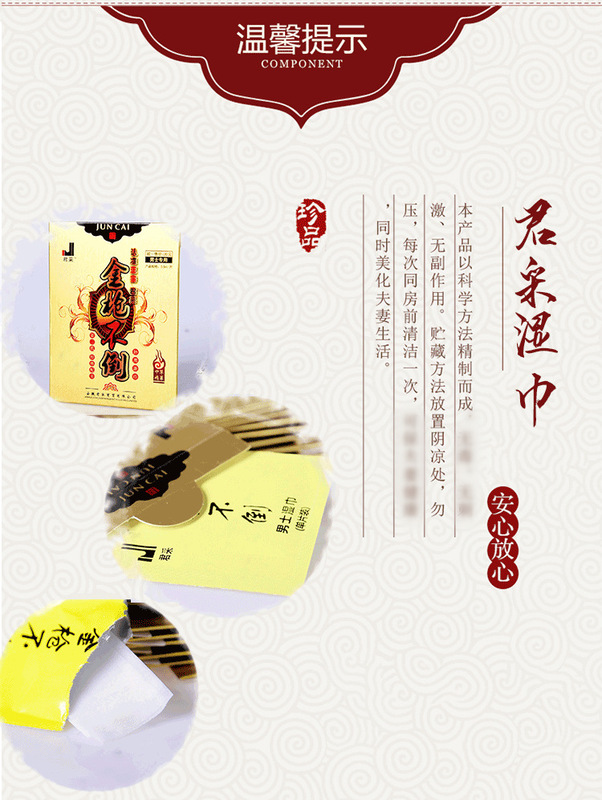 温馨提示
COMPONENT
君采湿巾
本产品以科学方法精制而成
激、无副作用。贮藏方法放置阴凉处，勿
压，每次同房前清洁一次，
，同时美化夫妻生活。
珍品
安心放心
JUN CAI
君采
男士专用
金枪不倒
JUN CAI
不倒
男士湿巾
君采
金枪不